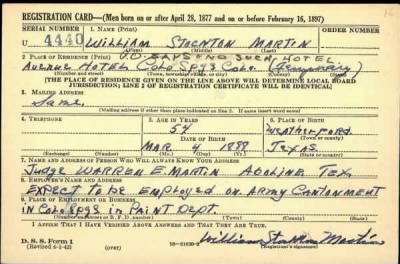 REGISTRATION CARD—(Men born on or after April 28, 1877 and on or before February 16, 1897)
SERIAL NUMBER 1. NAME (Print) ORDER NUMBER
U 4440 WILLIAM STOENTON MARTIN
(First) (Middle) (Last)
P.O. SAYS NO SUCH HOTEL
2. PLACE OF RESIDENCE (Print)
AVENUE HOTEL COLO SPGS COLO. (TEMPORARY)
(Number and street) (Town, township, village, or city) (County) (State)
[THE PLACE OF RESIDENCE GIVEN ON THE LINE ABOVE WILL DETERMINE LOCAL BOARD
JURISDICTION; LINE 2 OF REGISTRATION CERTIFICATE WILL BE IDENTICAL]
3. MAILING ADDRESS
Same
[Mailing address if other than place indicated on line 2. If same insert word same]
4. TELEPHONE 5. AGE IN YEARS 6. PLACE OF BIRTH
54 WEATHERFORD
(Town or county)
DATE OF BIRTH
MAR 4 1888 TEXAS
(Exchange) (Number) (Mo.) (Day) (Yr.) (State or country)
7. NAME AND ADDRESS OF PERSON WHO WILL ALWAYS KNOW YOUR ADDRESS
JUDGE WARREN E MARTIN ABOLINE TEX
8. EMPLOYER'S NAME AND ADDRESS
EXPECT TO BE EMPLOYED ON ARMY CANTONMENT
9. PLACE OF EMPLOYMENT OR BUSINESS
IN COLO SPGS IN PAINT DEPT.
(Number and street or R. F. D. number) (Town) (County) (State)
I AFFIRM THAT I HAVE VERIFIED ABOVE ANSWERS AND THAT THEY ARE TRUE.
D. S. S. Form 1
(Revised 4-1-42) (over)
William Stoenton Martin
(Registrant's signature)